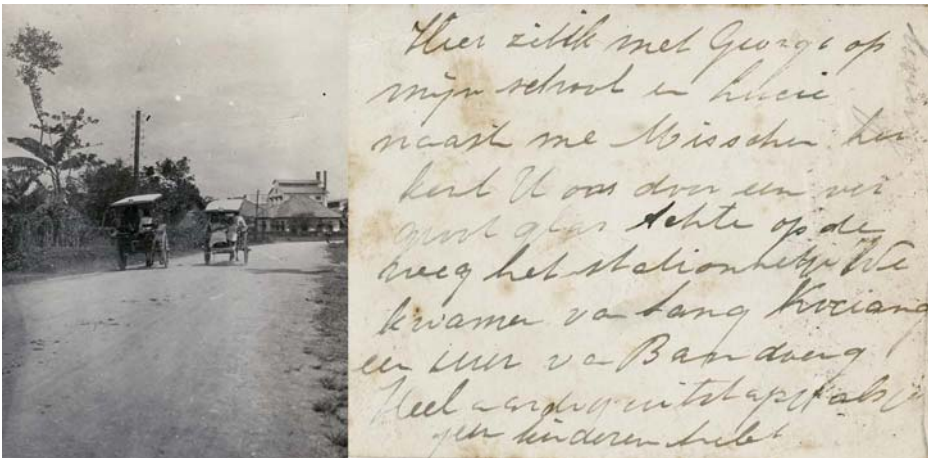 Hier zit ik met George op
mijn schoot en Lucie
naast me Misschien her
kent U ons door een ver
groot glas Achte op de
weg het stationnetje We
kwamen van
een uur va Bandoeng
Heel aardig uitstapje als je
geen kinderen hebt